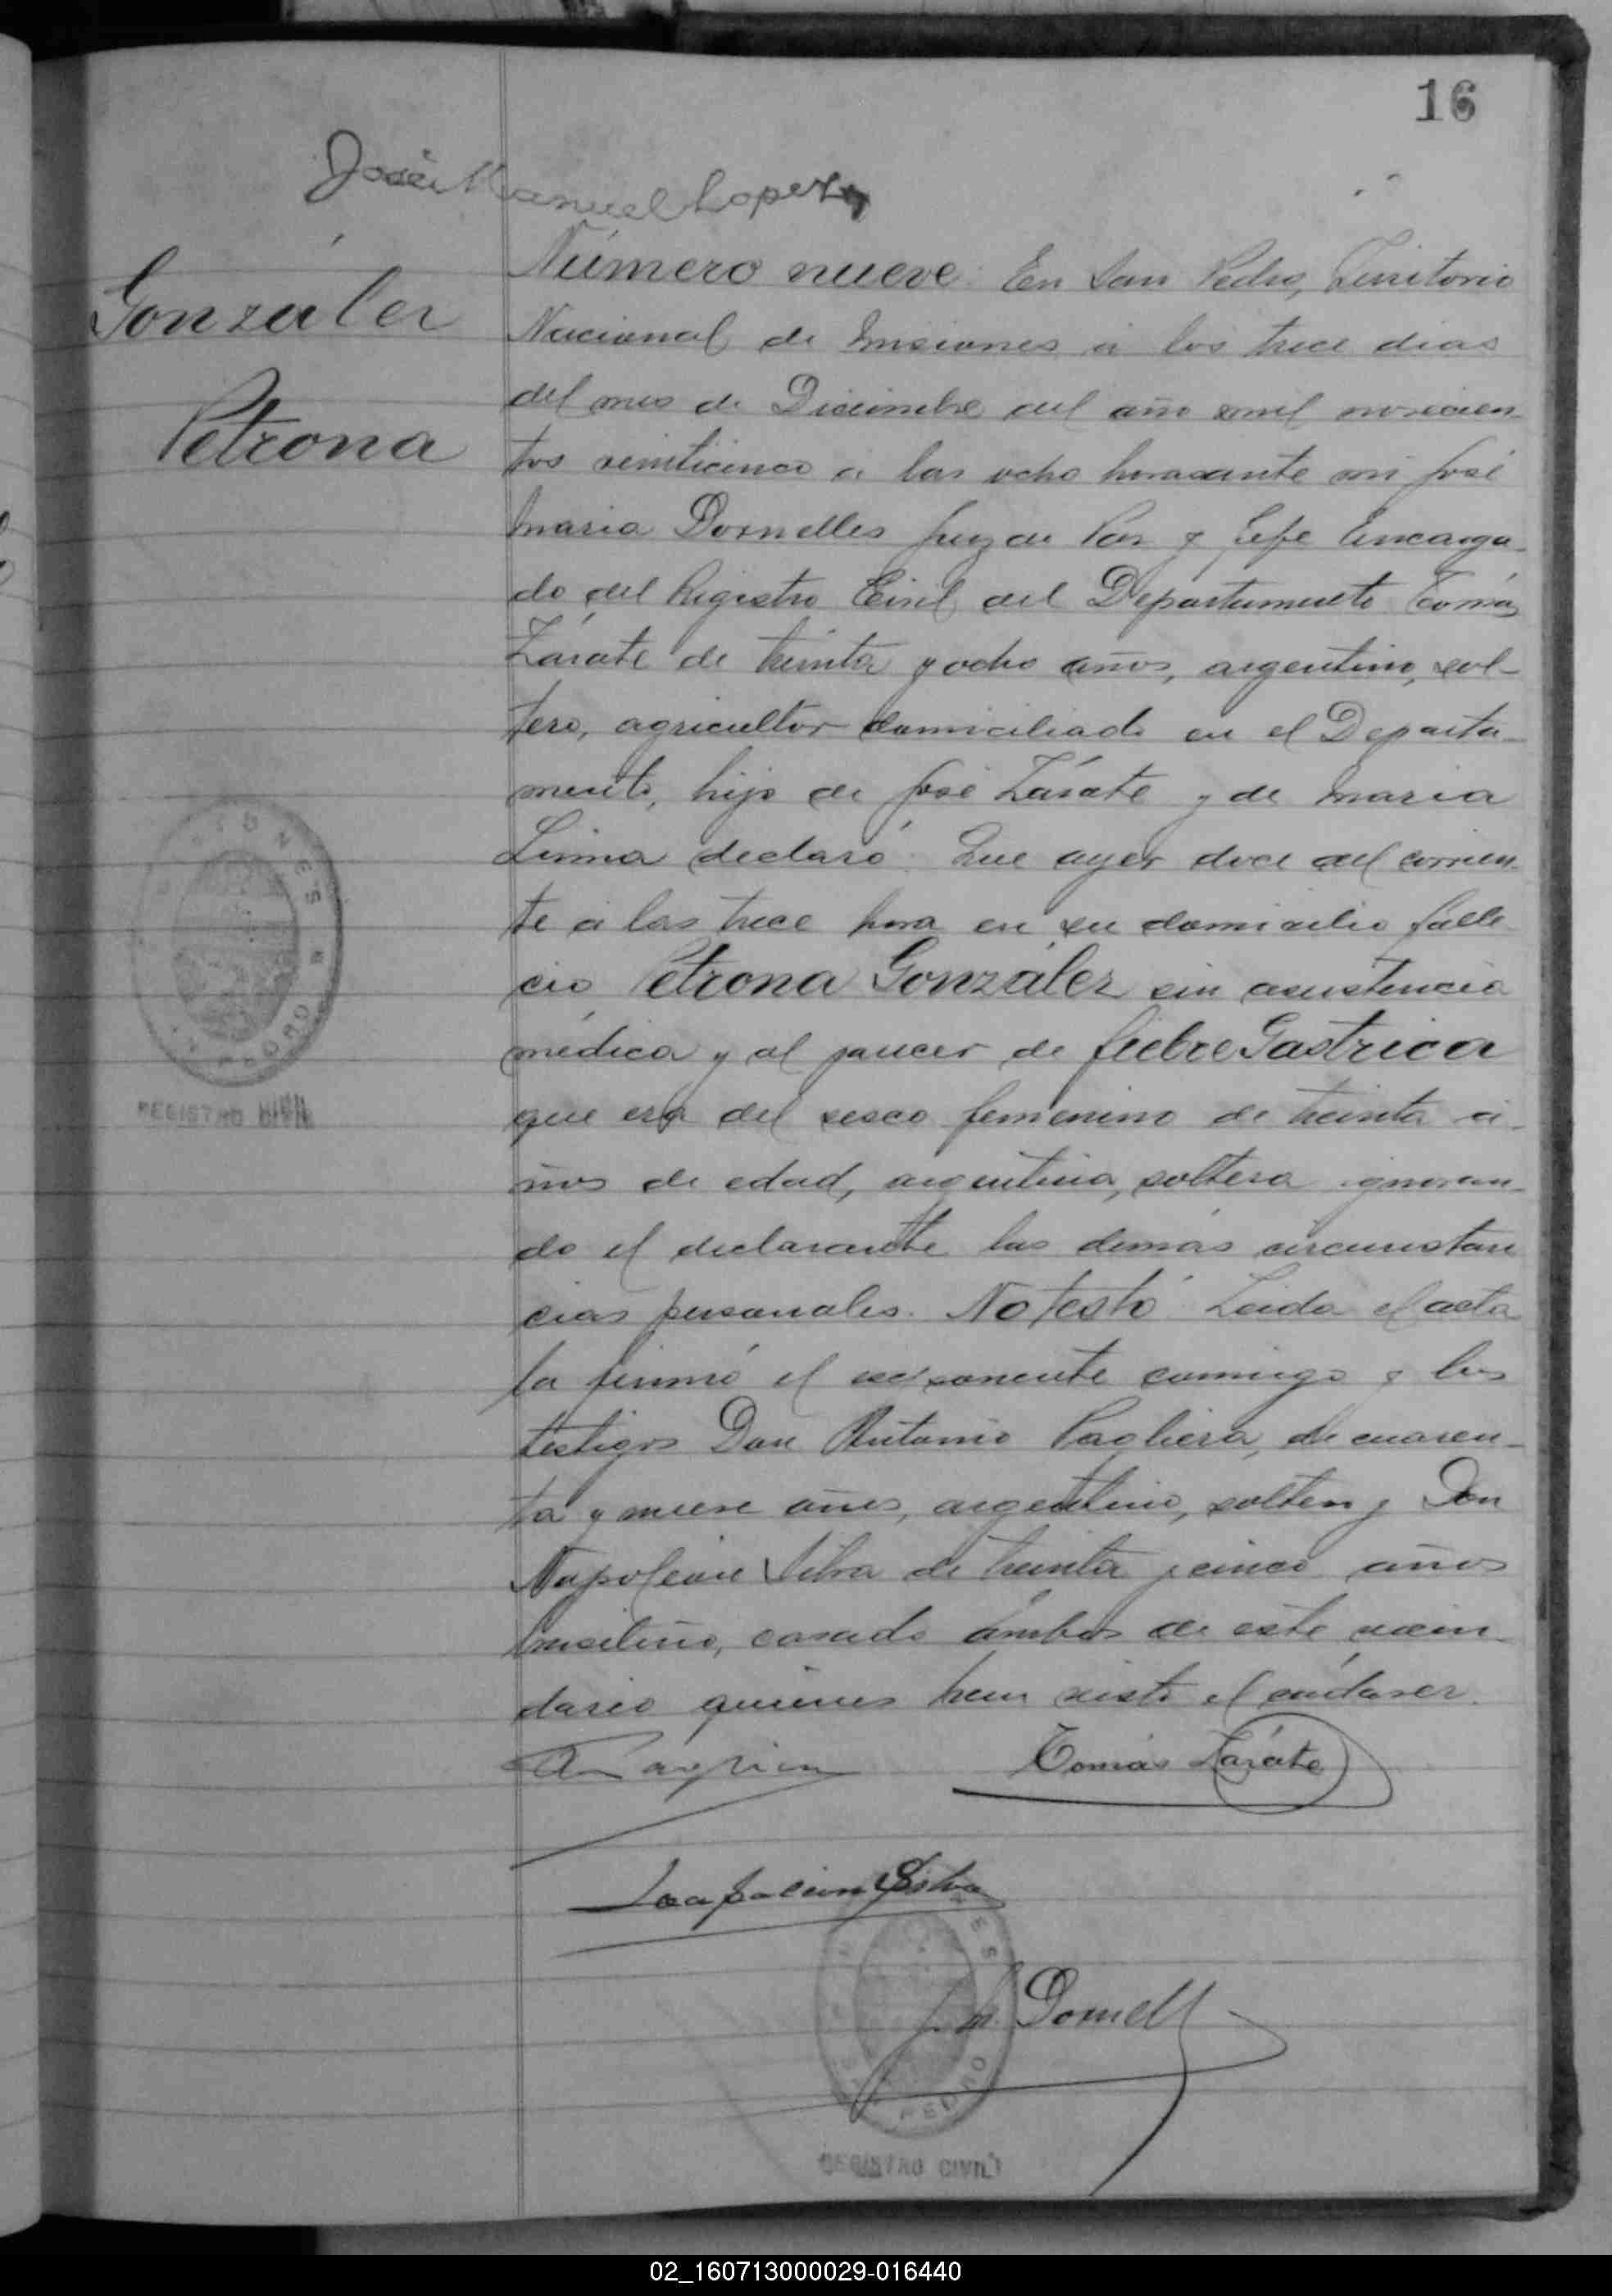 16
José Manuel Lopez
González
Petrona
Número nueve. En San Pedro, Territorio
Nacional de Misiones á los trece dias
del mes de Diciembre del año mil novecien-
tos veinticinco á las ocho horas ante mi José
Maria Dornelles Juez de Paz y Jefe Encarga-
do del Registro Civil del Departamento Tomás
Zárate de treinta y ocho años, argentino, sol-
tero, agricultor domiciliado en el Departa-
mento, hijo de José Zárate y de Maria
Linna declaró: Que ayer doce del corrien-
te á las trece hora en su domicilio falle-
cio Petrona González sin asistencia
médica y al parecer de fiebre Gastrica
que era del sexo femenino de treinta a-
ños de edad, argentina, soltera ignoran-
do el declarante las demás circunstan
cias personales. No testó. Leida el acta
la firmó el exponente conmigo y los
testigos Don Antonio Pagliera, de cuaren-
ta y nueve años, argentino, soltero y Don
Napoleon Silva de treinta y cinco años
brasileño, casado ámbos de este vecin-
dario quienes han visto el cadaver.
Tomás Zárate
Napoleon Silva
J. M. Dornell
MISIONES
PEDRO
REGISTRO CIVIL
PEDRO
REGISTRO CIVIL
02_160713000029-016440